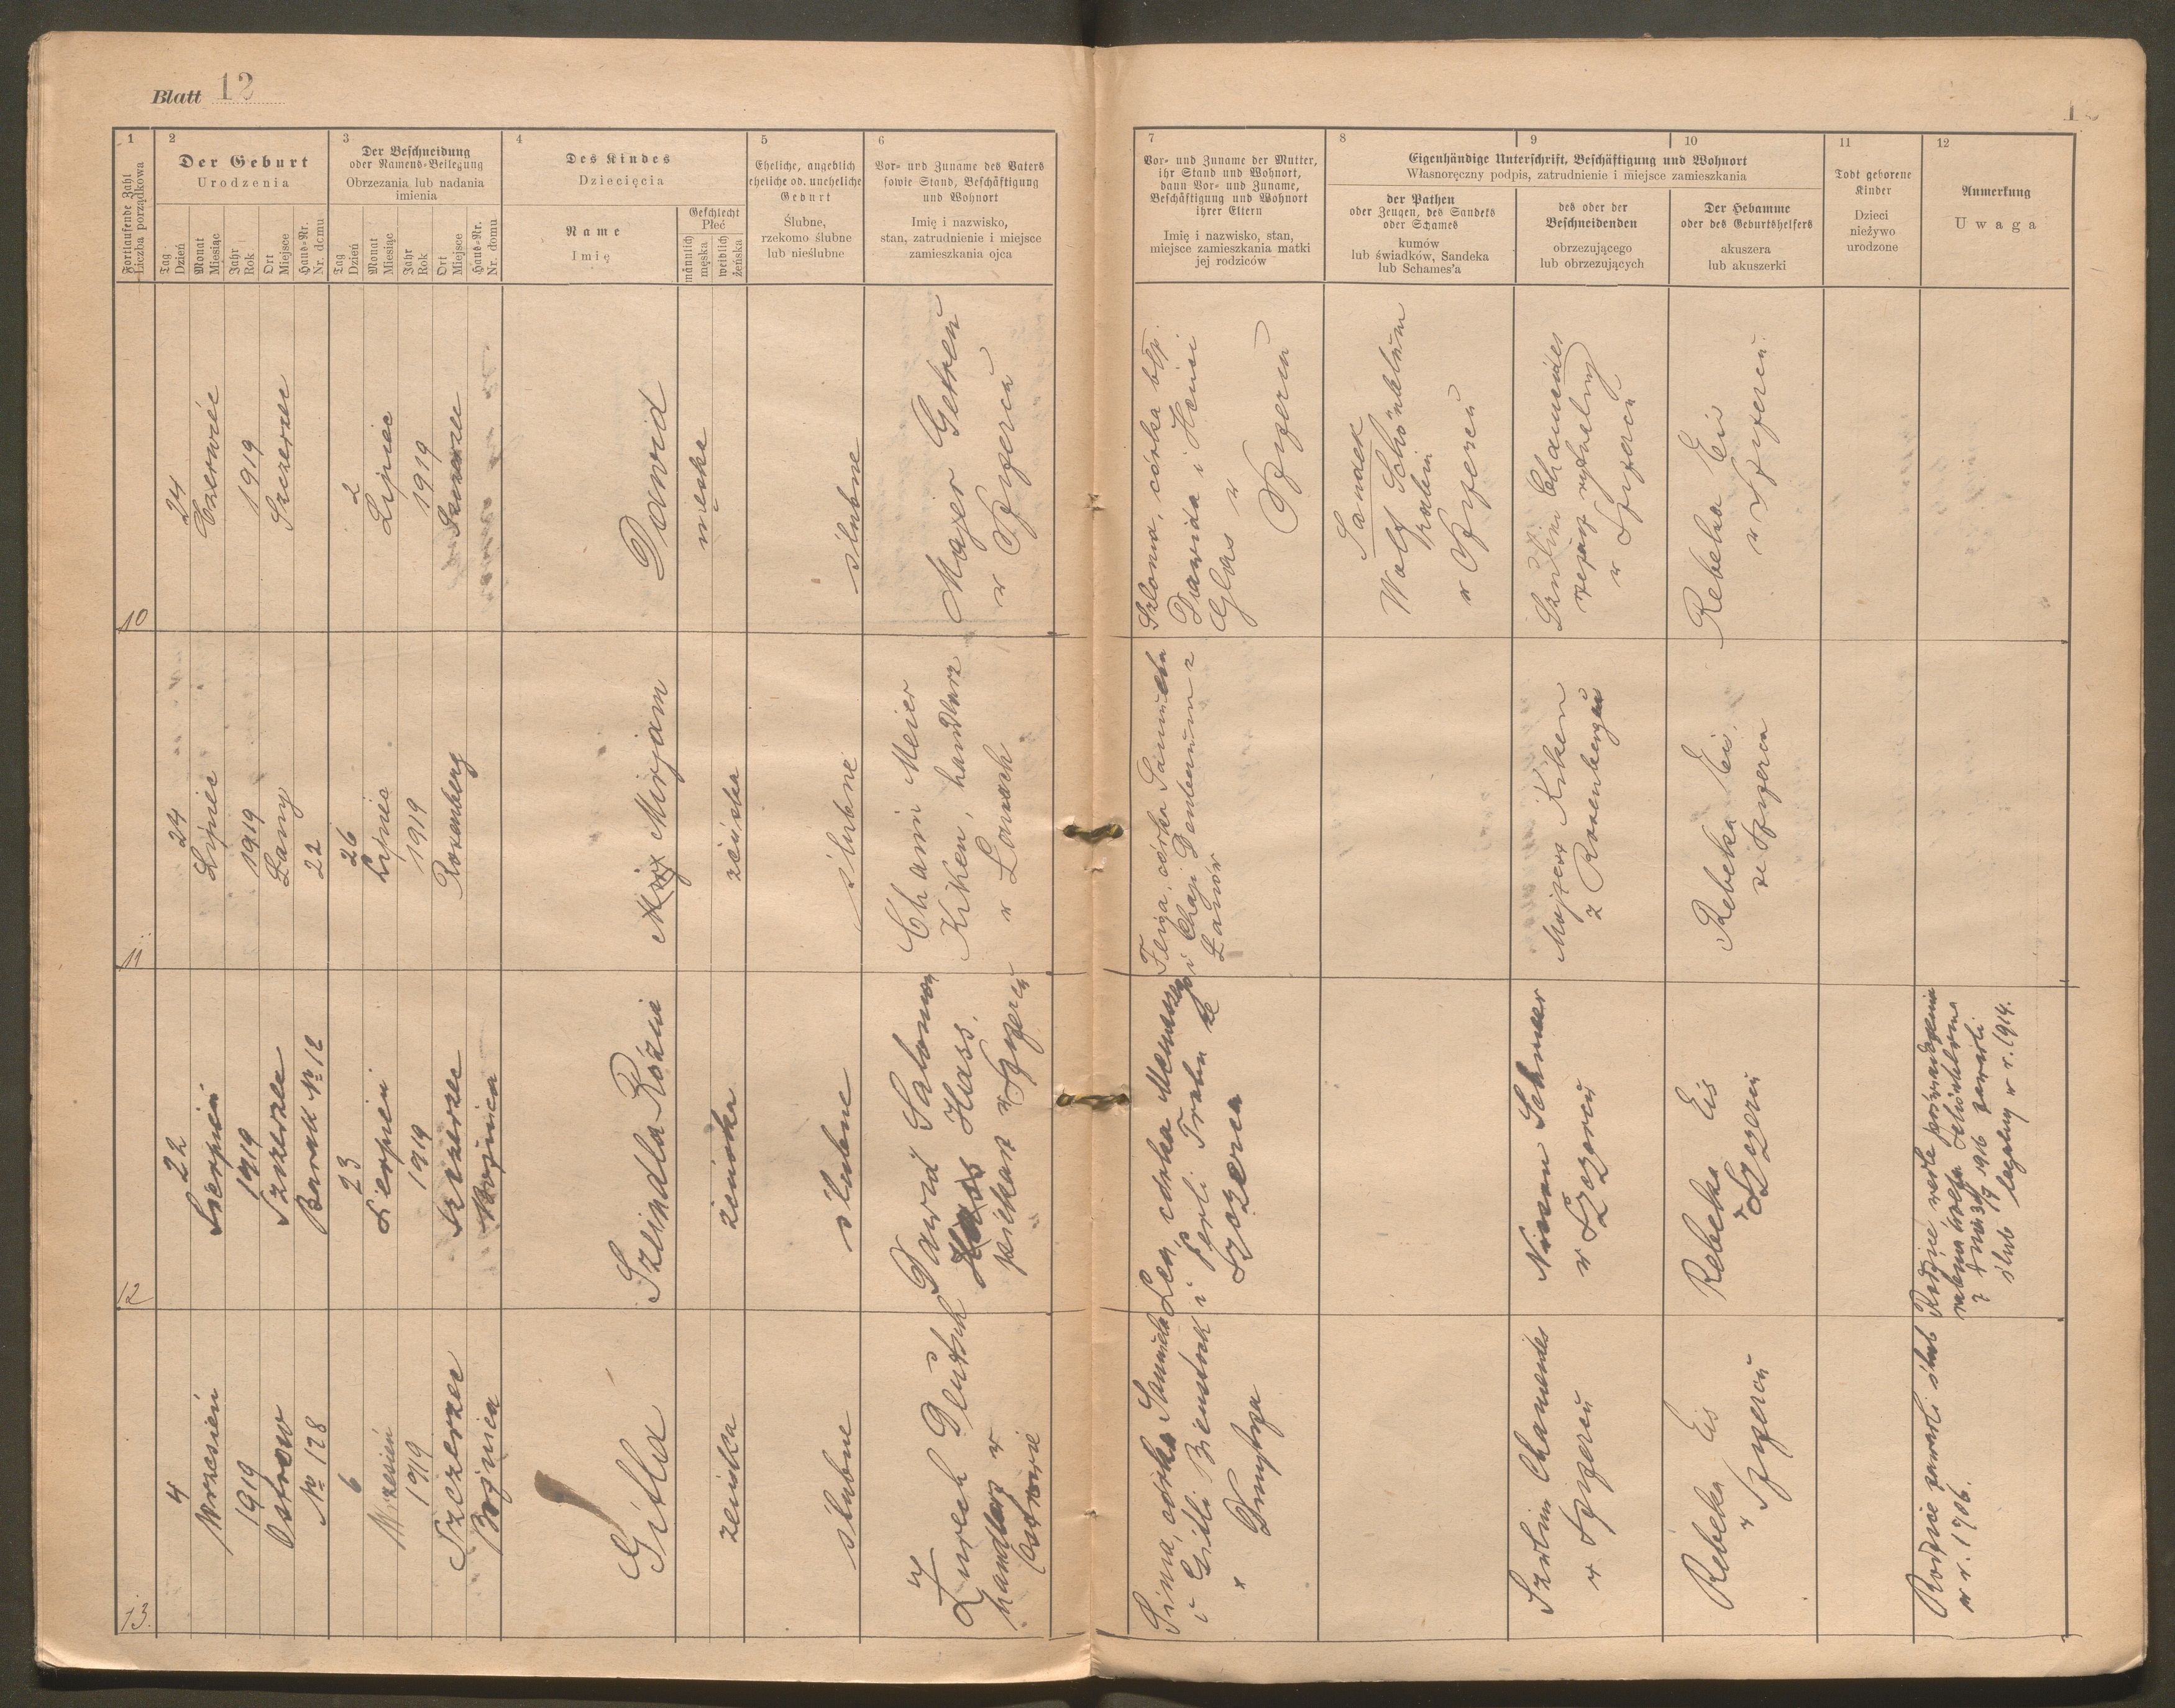 Blatt 12
1
Fortlaufende Zahl
Liczba porządkowa
2
Der Geburt
Urodzenia
Tag
Dzień
Monat
Miesiąc
Jahr
Rok
Ort
Miejsce
Haus-Nr.
Nr. domu
3
Der Beschneidung
oder Namens-Beilegung
Obrzezania lub nadania
imienia
Tag
Dzień
Monat
Miesiąc
Jahr
Rok
Ort
Miejsce
Haus-Nr.
Nr. domu
4
Des Kindes
Dziecięcia
Name
Imię
Geschlecht
Płeć
männlich
męska
weiblich
żeńska
5
Eheliche, angeblich
eheliche od. uneheliche
Geburt
Ślubne,
rzekomo ślubne
lub nieślubne
6
Vor- und Zuname des Vaters
sowie Stand, Beschäftigung
und Wohnort
Imię i nazwisko,
stan, zatrudnienie i miejsce
zamieszkania ojca
7
Vor- und Zuname der Mutter,
ihr Stand und Wohnort,
dann Vor- und Zuname,
Beschäftigung und Wohnort
ihrer Eltern
Imię i nazwisko, stan,
miejsce zamieszkania matki
jej rodziców
8
9
10
Eigenhändige Unterschrift, Beschäftigung und Wohnort
Własnoręczny podpis, zatrudnienie i miejsce zamieszkania
der Pathen
oder Zeugen, des Sandeks
oder Schames
kumów
lub świadków, Sandeka
lub Schames'a
des oder der
Beschneidenden
obrzezującego
lub obrzezujących
Der Hebamme
oder des Geburtshelfers
akuszera
lub akuszerki
11
Todt geborene
Kinder
Dzieci
nieżywo
urodzone
12
Anmerkung
Uwaga
10
24
Czerwiec
1919
Szczerzec
2
Lipiec
1919
Szczerzec
Dawid
męska
ślubne
Majer Getreu
w Szczercu
córka
Dawida i
Glas w
Szczercu
Sandek
Wolf Schönblum
w Szczercu
Chameides
w Szczercu
Rebeka Eis
w Szczercu
11
24
Lipiec
1919
Łany
22
26
Lipiec
1919
Rosenberg
Mirjam
żeńska
ślubne
Chaim Meier
Kiken, handlarz
w Łanach
Feiga, córka Samuela
i Chaji
Łanów
Mojżesz Kiken
z Rosenbergu
Rebeka Eis
ze Szczerca
12
22
Sierpień
1919
Szczerzec
Barak № 12
23
Sierpień
1919
Szczerzec
Bożnica
Szeindla Rózia
żeńska
ślubne
Dawid Salomon
Hass
Hass,
piekarz w Szczercu
Lea, córka
i Perli ze
Szczerca
w Szczercu
Rebeka Eis
w Szczercu
Rodzice wedle poświadczenia
1916 zawarli
ślub legalny w r. 1914.
13
4
Wrzesień
1919
Ostrów
№ 128
6
Wrzesień
1919
Szczerzec
Bożnica
Gitla
żeńska
ślubne
Deutsch
handlarz w
Ostrowie
Sima, córka Samuela
i Gitli Bienstock
Chameides
w Szczercu
Rebeka Eis
w Szczercu
Rodzice zawarli ślub
w r. 1906.